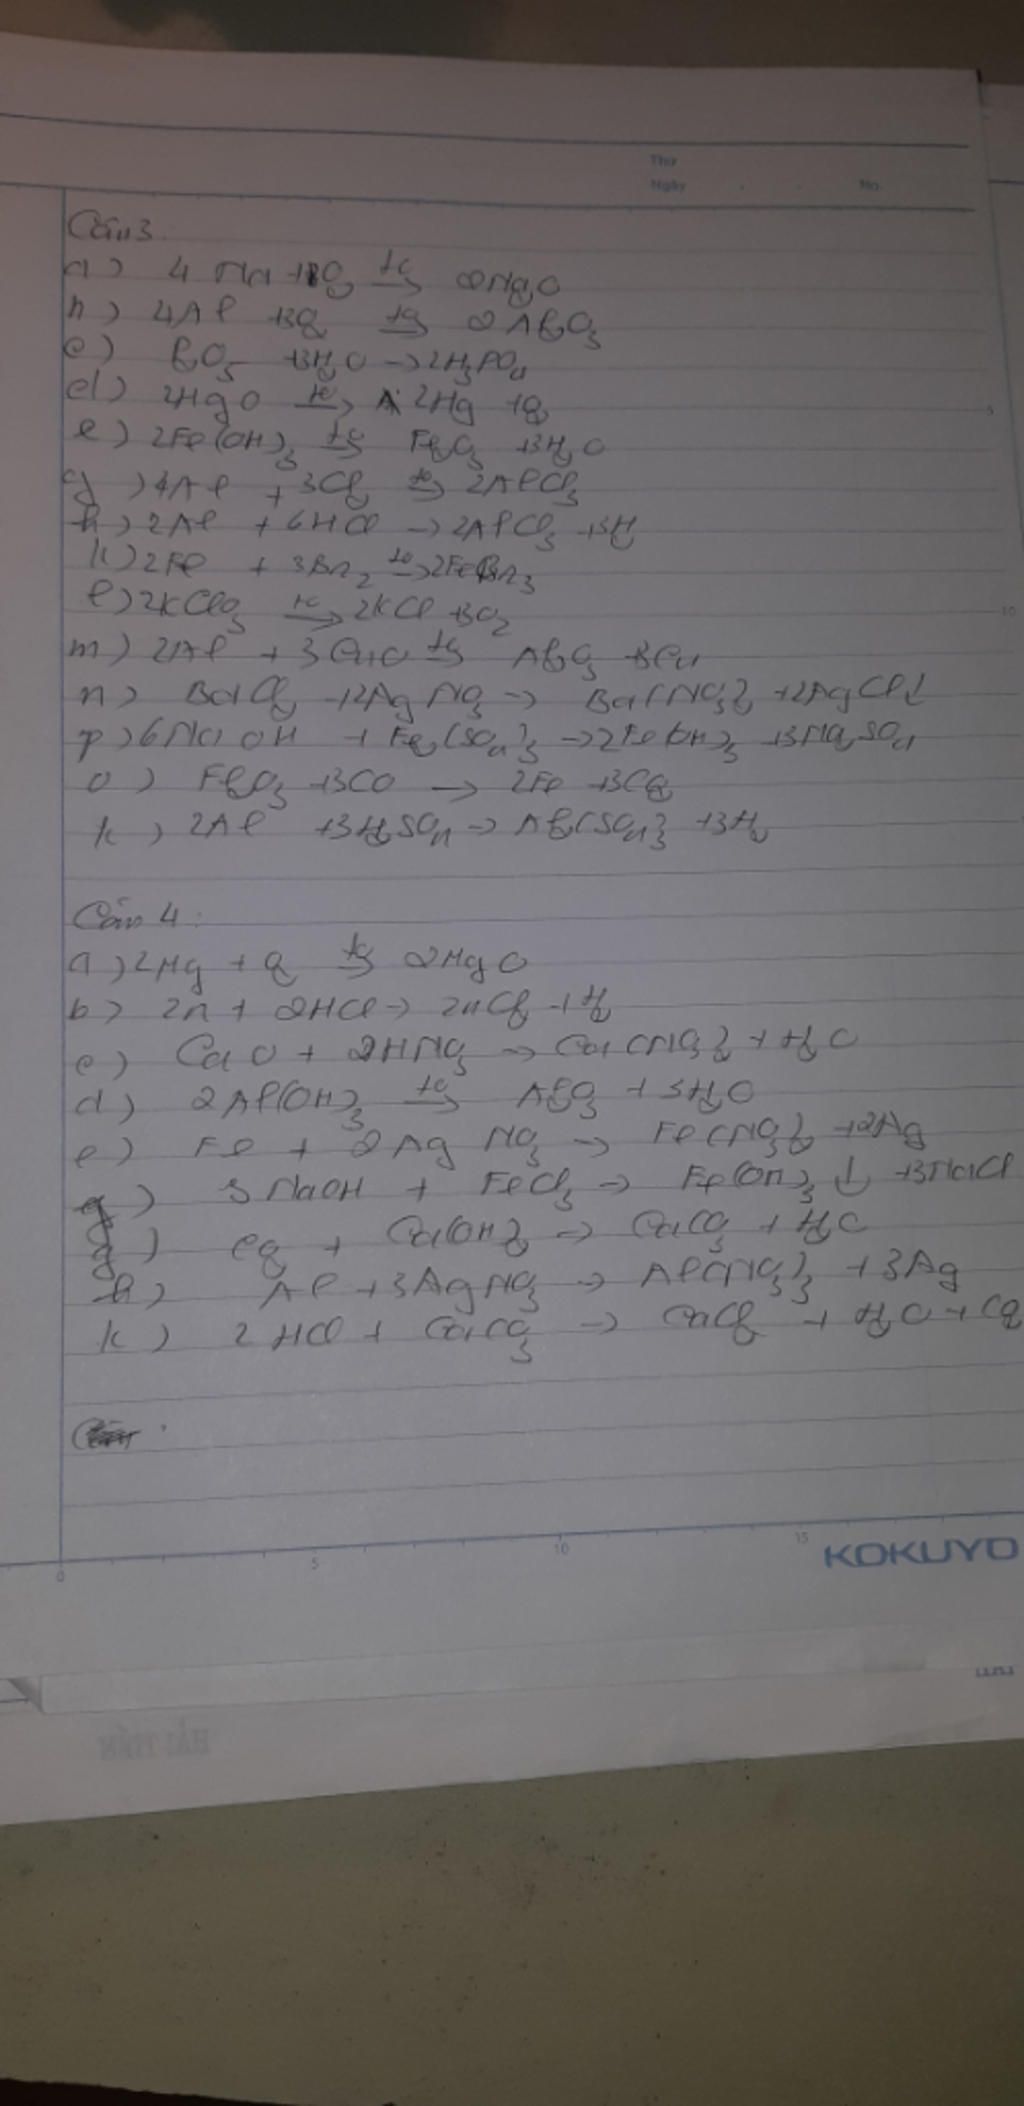 Thứ
Ngày . . No.
Câu 3
a) 4Na + O₂ t°→ 2Na₂O
b) 4Al + 3O₂ t°→ 2Al₂O₃
c) P₂O₅ + 3H₂O → 2H₃PO₄
d) 2HgO t°→ 2Hg + O₂
e) 2Fe(OH)₃ t°→ Fe₂O₃ + 3H₂O
g) 4Al + 3Cl₂ t°→ 2AlCl₃
h) 2Al + 6HCl → 2AlCl₃ + 3H₂
k) 2Fe + 3Br₂ t°→ 2FeBr₃
l) 2KClO₃ t°→ 2KCl + 3O₂
m) 2Al + 3CuO t°→ Al₂O₃ + 3Cu
n) BaCl₂ + 2AgNO₃ → Ba(NO₃)₂ + 2AgCl↓
p) 6NaOH + Fe₂(SO₄)₃ → 2Fe(OH)₃ + 3Na₂SO₄
o) Fe₂O₃ + 3CO → 2Fe + 3CO₂
k) 2Al + 3H₂SO₄ → Al₂(SO₄)₃ + 3H₂
Câu 4:
a) 2Mg + O₂ t°→ 2MgO
b) Zn + 2HCl → ZnCl₂ + H₂
c) CaO + 2HNO₃ → Ca(NO₃)₂ + H₂O
d) 2Al(OH)₃ t°→ Al₂O₃ + 3H₂O
e) Fe + 2AgNO₃ → Fe(NO₃)₂ + 2Ag
g) 3NaOH + FeCl₃ → Fe(OH)₃ ↓ + 3NaCl
g) CO₂ + Ca(OH)₂ → CaCO₃ + H₂O
h) Al + 3AgNO₃ → Al(NO₃)₃ + 3Ag
k) 2HCl + CaCO₃ → CaCl₂ + H₂O + CO₂
0 5 10 15
KOKUYO
HẢI TIẾN